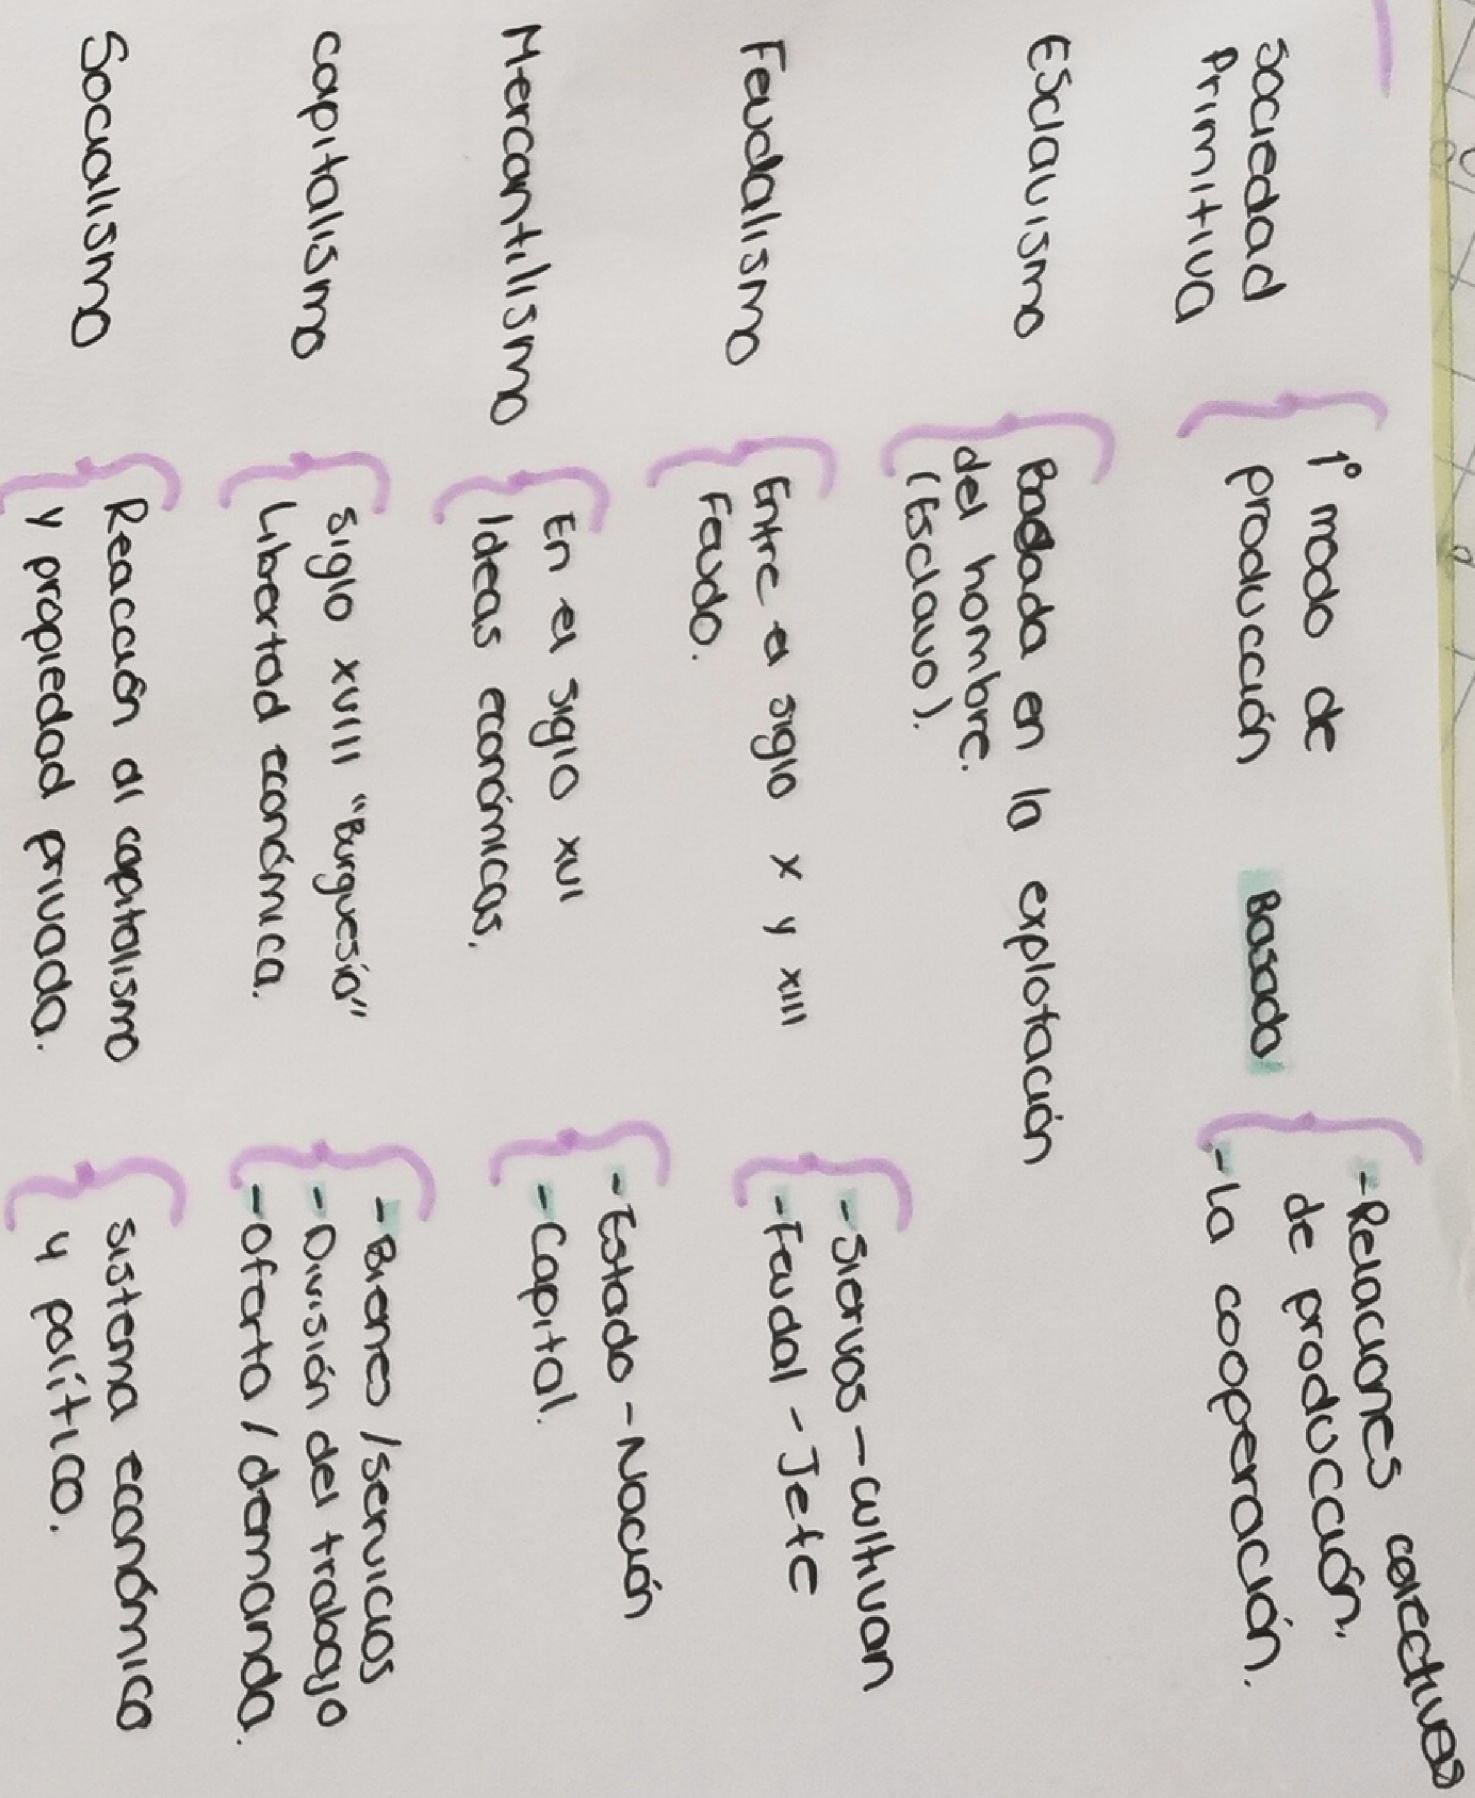 Sociedad
Primitiva
1° modo de
producción
Basada
-Relaciones colectivas
de producción.
-La cooperación.
Esclavismo
Basada en la explotación
del hombre.
(Esclavo).
Feudalismo
Entre el siglo X y XIII
Feudo.
-Siervos-cultivan
-Feudal-Jefe
Mercantilismo
En el siglo XVI
Ideas económicas.
-Estado-Nación
-Capital.
Capitalismo
Siglo XVIII "Burguesía"
Libertad económica.
-Bienes/servicios
-División del trabajo
-Oferta/demanda.
Socialismo
Reacción al capitalismo
y propiedad privada.
Sistema económico
y político.